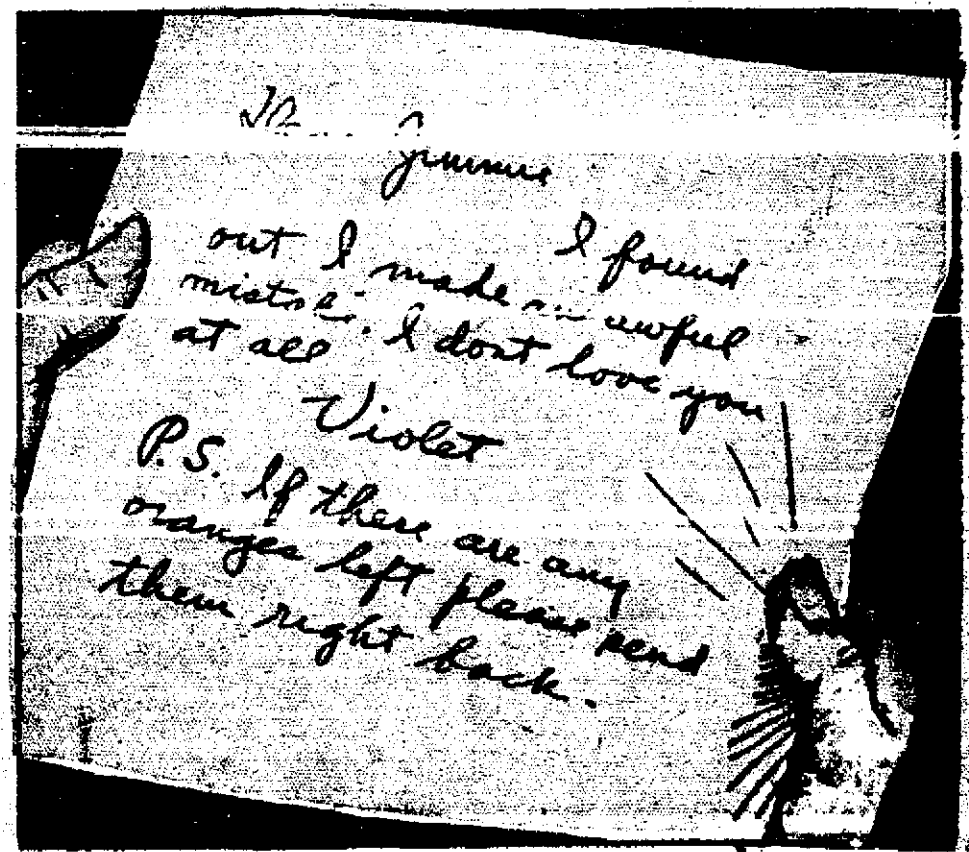 Jimmie
I found
out I made an awful
mistake. I dont love you
at all
Violet
P.S. If there are any
oranges left please send
them right back.